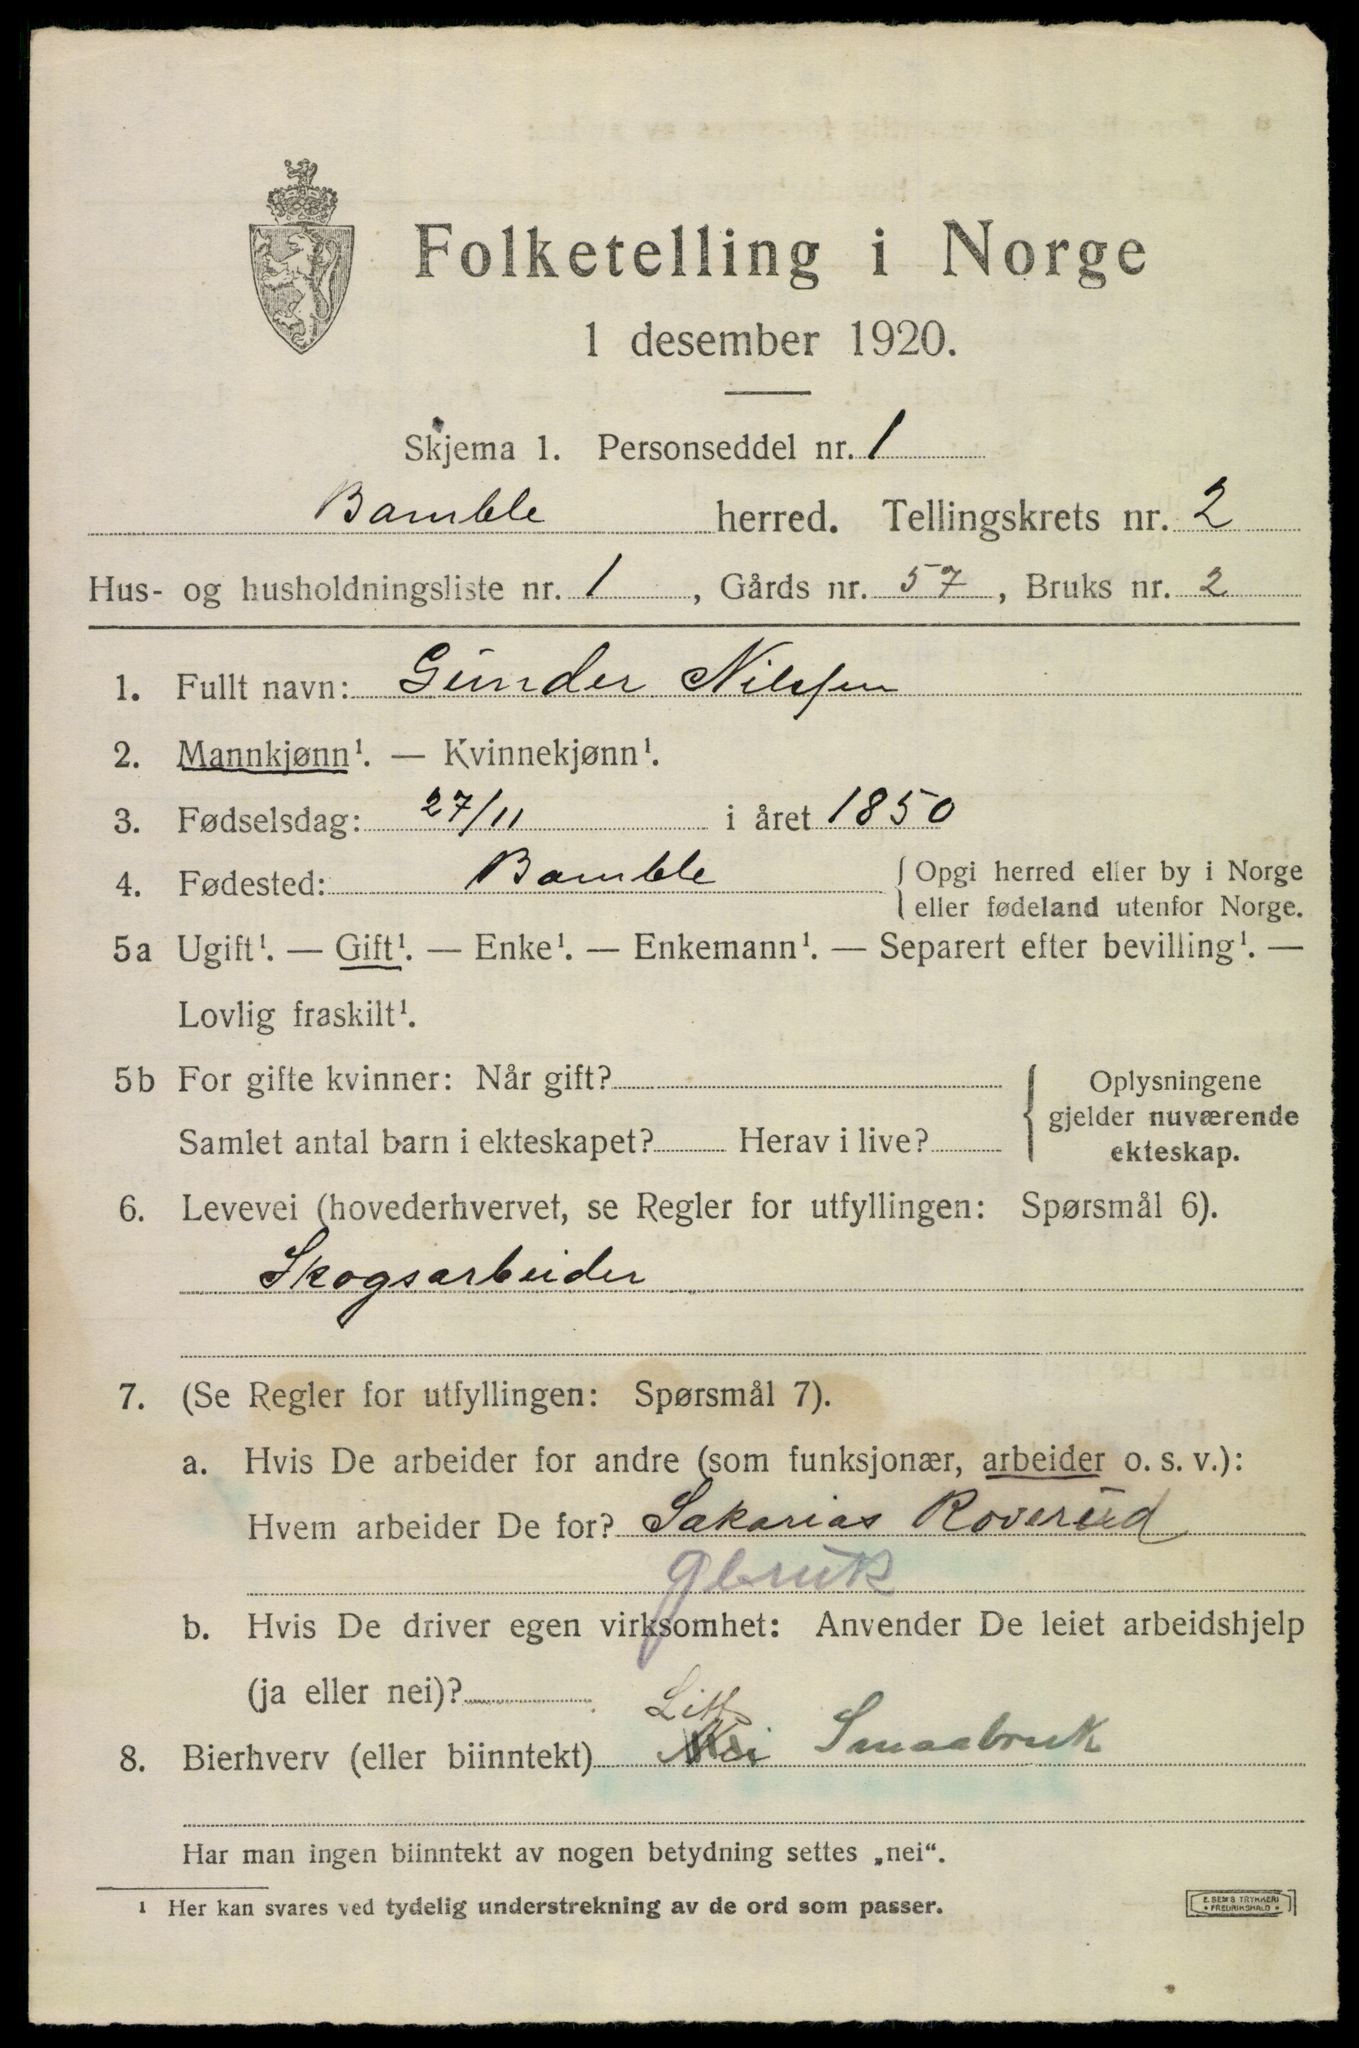 Folketelling i Norge
1 desember 1920.
Skjema 1. Personseddel nr. 1
Bamble herred. Tellingskrets nr. 2
Hus- og husholdningsliste nr. 1, Gårds nr. 57, Bruks nr. 2
1. Fullt navn: Gunder Nilssen
2. Mannkjønn¹. — Kvinnekjønn¹.
3. Fødselsdag: 27/11 i året 1850
4. Fødested: Bamble { Opgi herred eller by i Norge
eller fødeland utenfor Norge.
5a Ugift¹. — Gift¹. — Enke¹. — Enkemann¹. — Separert efter bevilling¹. —
Lovlig fraskilt¹.
5b For gifte kvinner: Når gift?
Samlet antal barn i ekteskapet? Herav i live?
Oplysningene
gjelder nuværende
ekteskap.
6. Levevei (hovederhvervet, se Regler for utfyllingen: Spørsmål 6).
Skogsarbeider
7. (Se Regler for utfyllingen: Spørsmål 7).
a. Hvis De arbeider for andre (som funksjonær, arbeider o. s. v.):
Hvem arbeider De for? Sakarias Roverud
gbruk
b. Hvis De driver egen virksomhet: Anvender De leiet arbeidshjelp
(ja eller nei)?
Litt
8. Bierhverv (eller biinntekt) Nei Smaabruk
Har man ingen biinntekt av nogen betydning settes „nei“.
¹ Her kan svares ved tydelig understrekning av de ord som passer.
E. SEMS TRYKKERI
FREDRIKSHALD